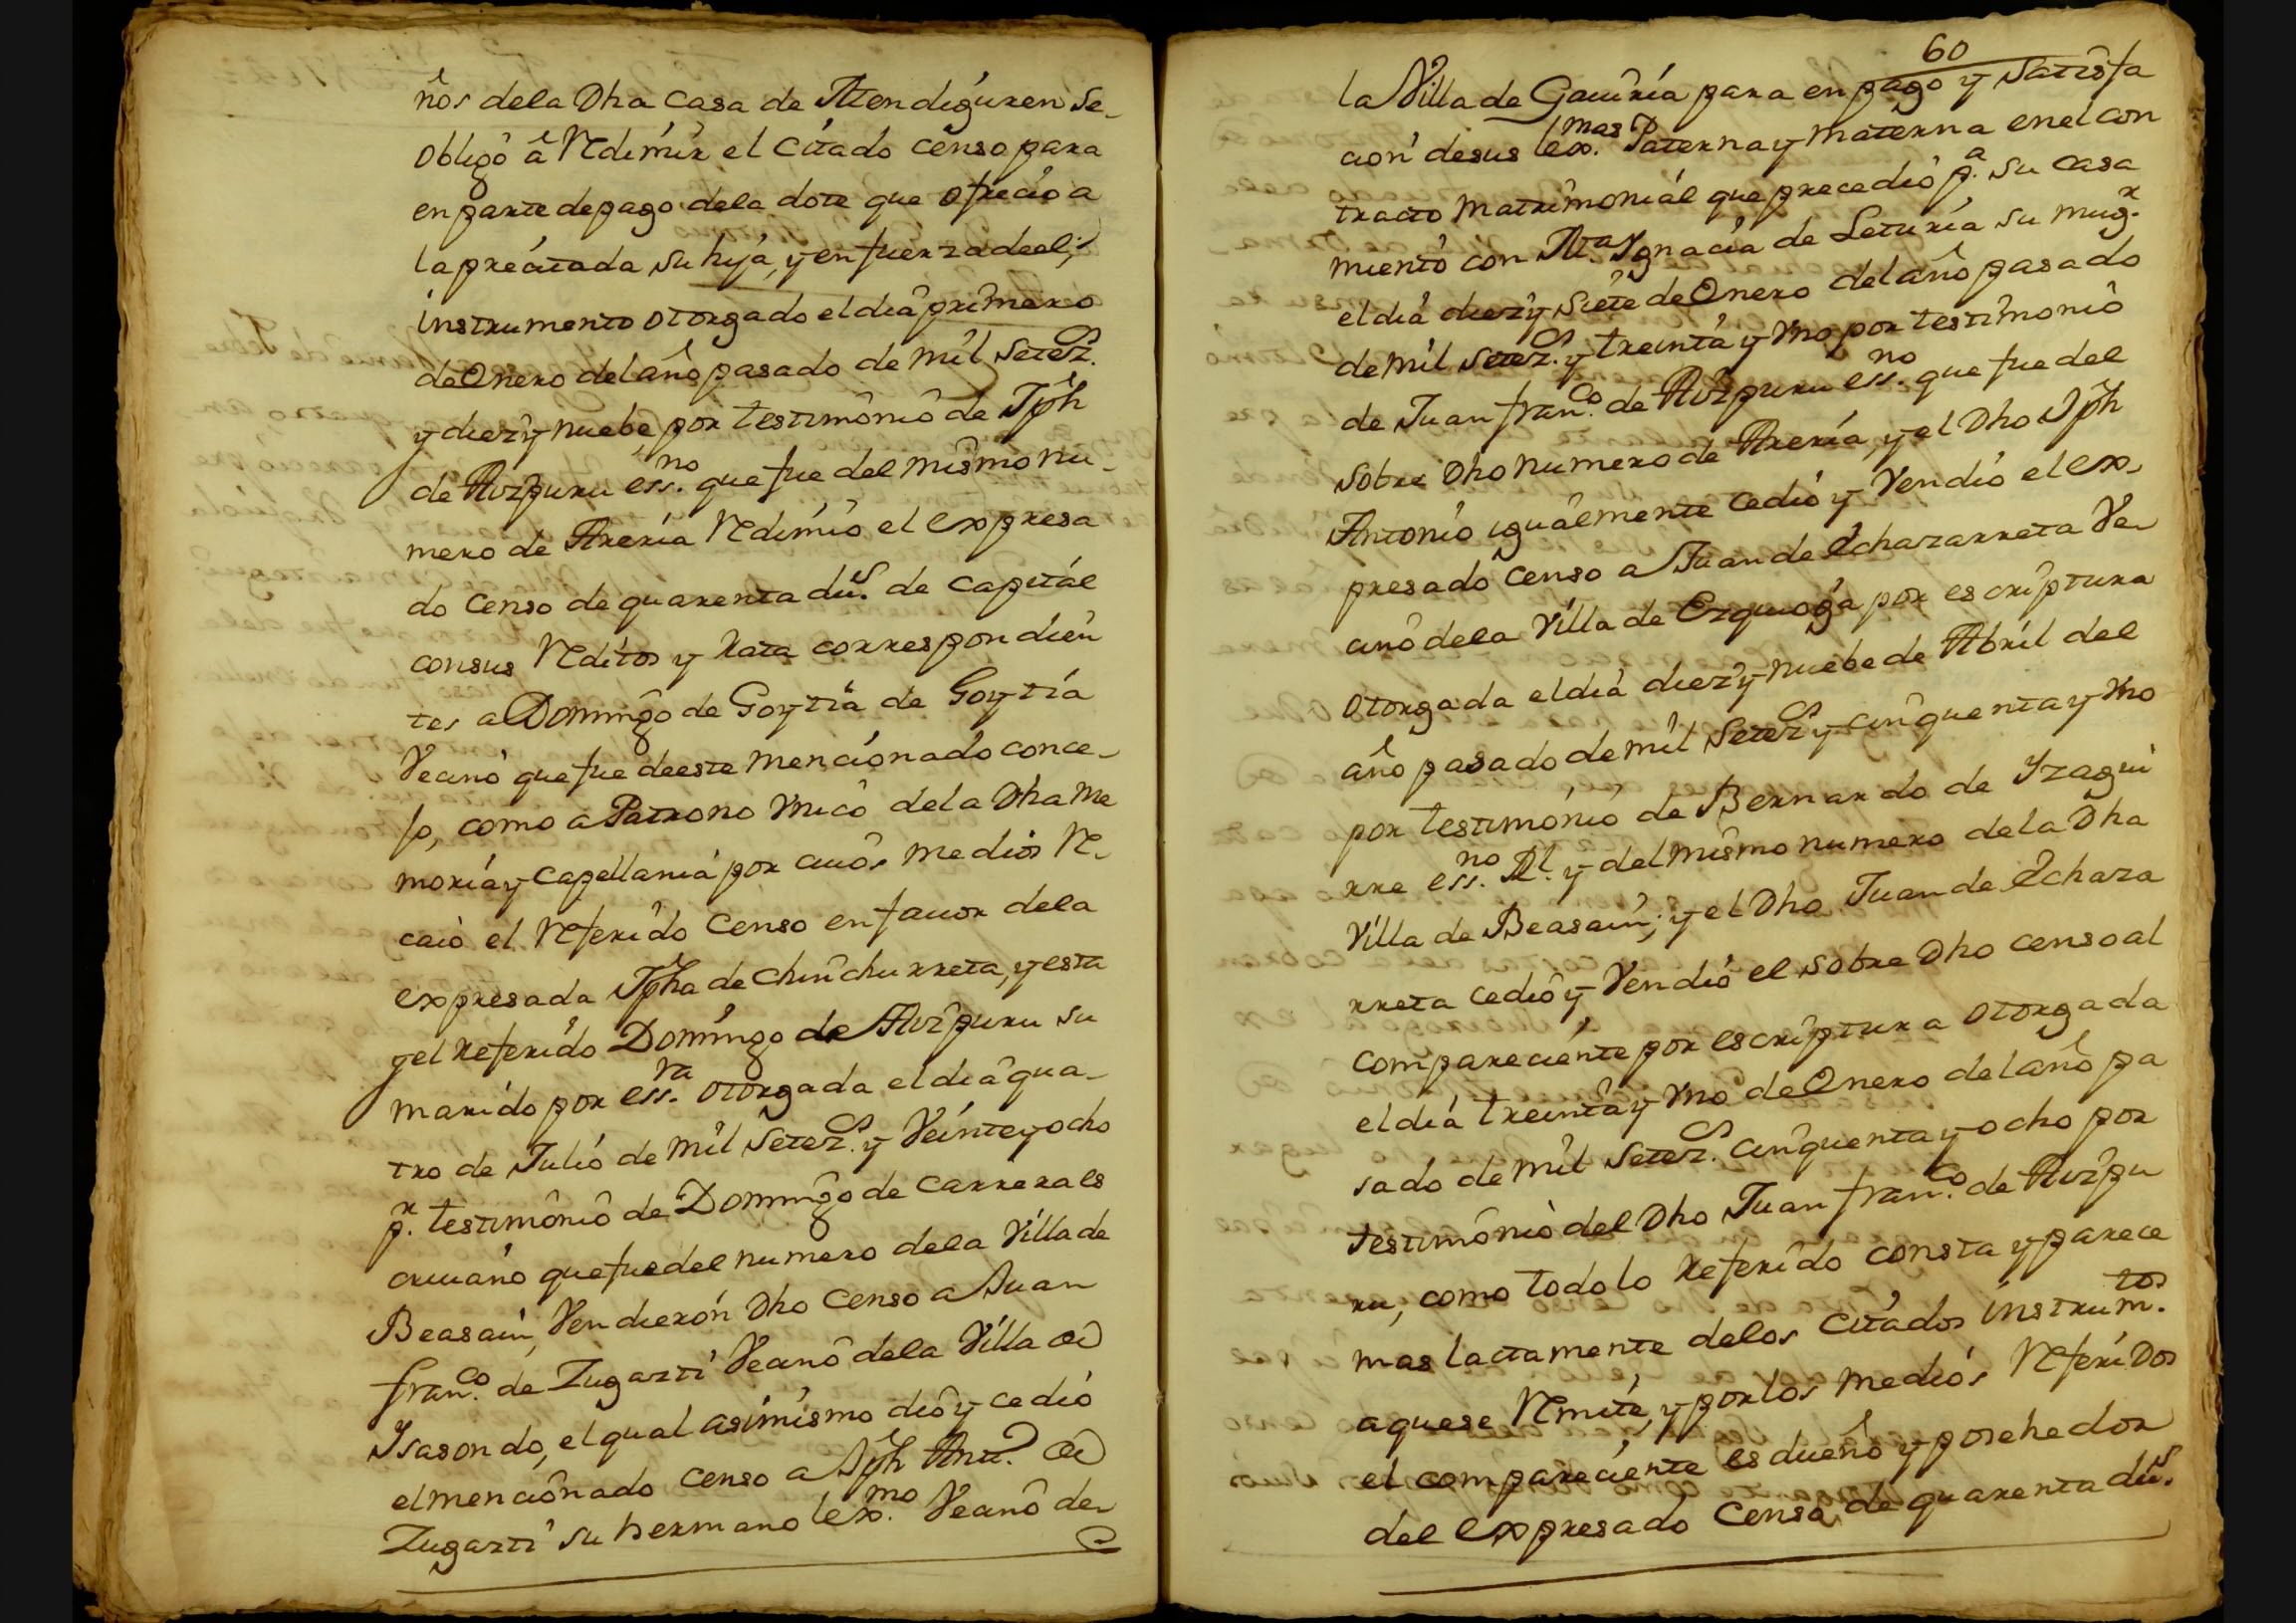 ños dela Dha Casa de Atendiguren Se-
obligô â Redimir el Citado Censo para
en parte de pago dela dote que ofrecio a
la precitada su hija, y en fuerza de el;
instrumento otorgado el dia primero
de Enero del año pasado de mil Setez.s
y diez y nuebe por testimonio de Jph
de Aizpuru ess.no que fue del mismo nu-
mero de Areria Redimio el expresa
do Censo de quarenta du.s de Capital
con sus Reditos y Rata correspondien
tes a Domingo de Goytia de Goytia
Vecino que fue de este mencionado conce-
jo, como a Patrono Vnico dela Dha Me
moria y Capellania por cuios medios Re-
caio el Referido Censo en fauor dela
expresada Jpha de Chinchurreta, y esta
y el Referido Domingo de Aizpuru su
marido por ess.ra otorgada el dia qua-
tro de Julio de mil Setez.s y Veinte y ocho
p.r testimonio de Domingo de Carrera es
criuano que fue del numero dela Villa de
Beasain, Vendieron Dho Censo a Juan
fran.co de Zugazti Vecino dela Villa de
Ysasondo, el qual asimismo dio y cedio
el mencionado Censo a Jph Ant.o de
Zugazti su hermano lex.mo Vecino de
60
la Villa de Gauiria para en pago y Satisfa
cion de sus lex.mas Paterna y Materna en el con
tracto Matrimonial que precedio p.a su casa
miento con M.a Ygnacia de Leturia su mug.r
el dia diez y siete de Enero del año pasado
de mil Setez.s y treinta y Vno por testimonio
de Juan fran.co de Aizpuru ess.no que fue del
sobre Dho Numero de Areria, y el Dho Jph
Antonio igualmente cedio y Vendio el ex-
presado Censo a Juan de Echazarreta Ve-
cino dela Villa de Ezquioga por escriptura
otorgada el dia diez y nuebe de Abril del
año pasado de mil Setez.s y cinquenta y Vno
por testimonio de Bernardo de Yzagui
rre ess.no Rl. y del mismo numero dela Dha
Villa de Beasain; y el Dho Juan de Echaza
rreta cedio y Vendio el sobre Dho censo al
compareciente por escriptura otorgada
el dia treinta y Vno de Enero del año pa
sado de mil Setez.s cinquenta y ocho por
testimonio del Dho Juan fran.co de Aizpu
ru, como todo lo Referido consta y parece
mas lactamente delos Citados instrum.tos
a que se Remite, y por los medios Referidos
el compareciente es dueño y posehedor
del expresado Censo de quarenta du.s